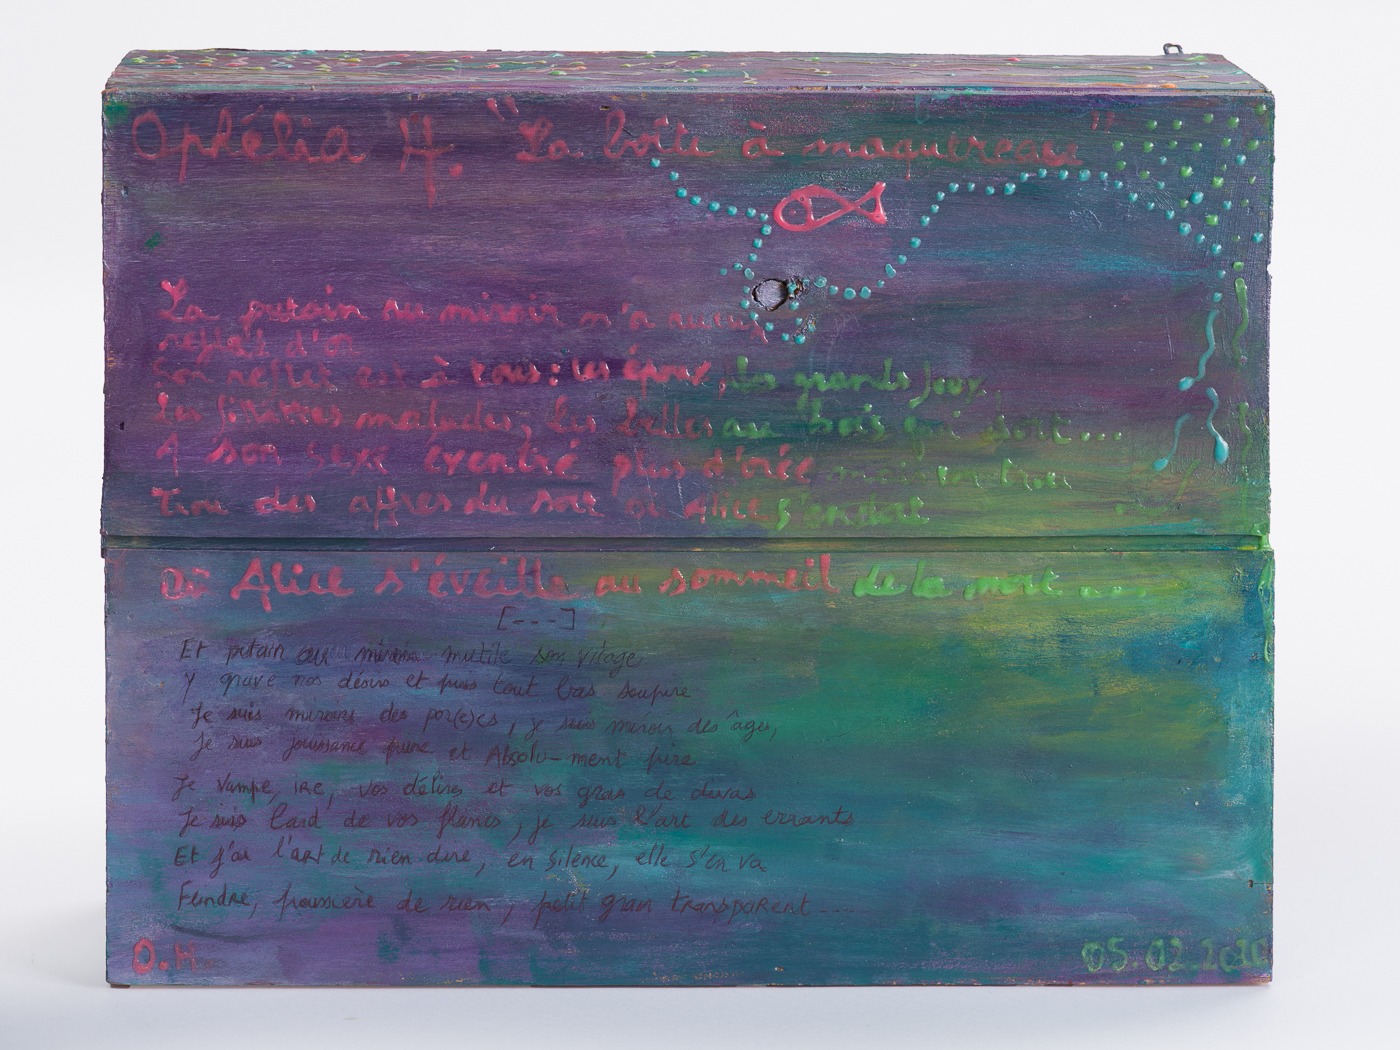 Ophélia H. "La boîte à maquereau"
La putain au miroir n'a aucun
reflet d'or
Son reflet est à vous : les époux, les grands
les belles au bois qui dort...
A son sexe éventré plus d'orée mais un trou
Trou des affres du sort où Alice s'endort
Où Alice s'éveille au sommeil de la mort ...
[---]
Et putain au miroir mutile son visage
Y grave nos désirs et puis tout bas soupire
Je suis miroirs des por(e)cs, je suis miroir des âges,
Je suis jouissance pure et Absolu-ment pire
Je vampe, ire, vos délires et vos gras de
Je suis lard de vos flancs, je suis l'art des errants
Et j'ai l'art de rien dire, en silence, elle s'en va
Fendre, poussière de rien, petit grain transparent....
O.H.
05.02.2020